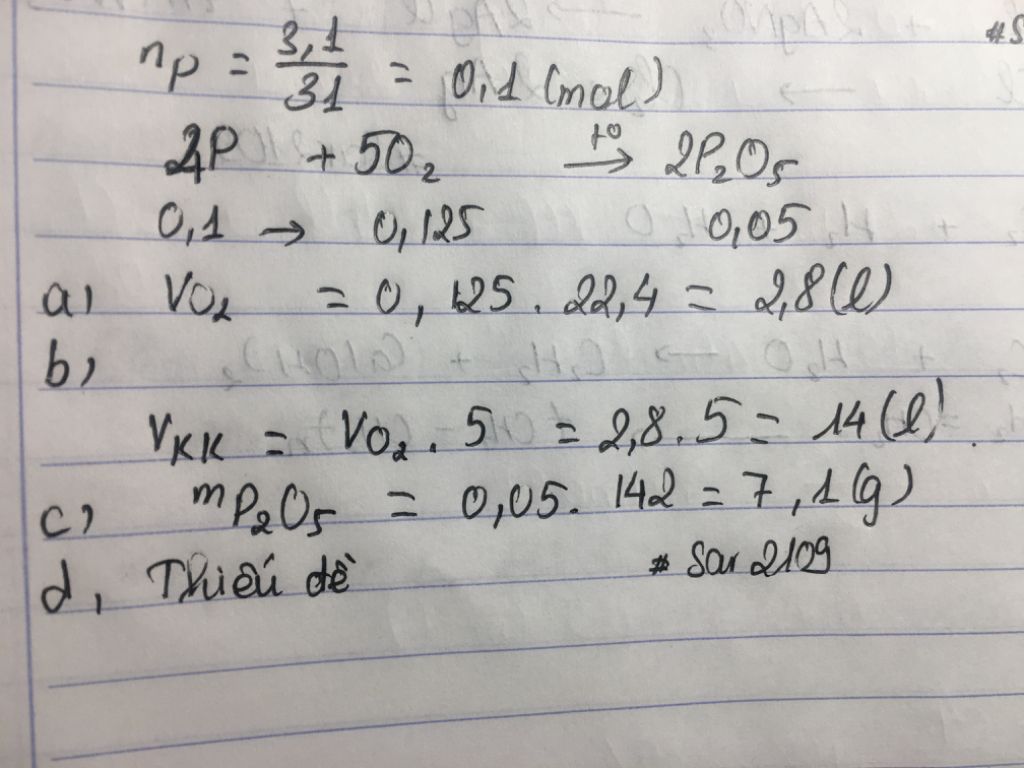 #S
nP = 3,1/31 = 0,1 (mol)
4P + 5O₂ →(t°) 2P₂O₅
0,1 → 0,125 0,05
a, VO₂ = 0,125 . 22,4 = 2,8 (l)
b,
VKK = VO₂ . 5 = 2,8 . 5 = 14 (l)
c, mP₂O₅ = 0,05 . 142 = 7,1 (g)
d, Thiếu đề # Sar 2109